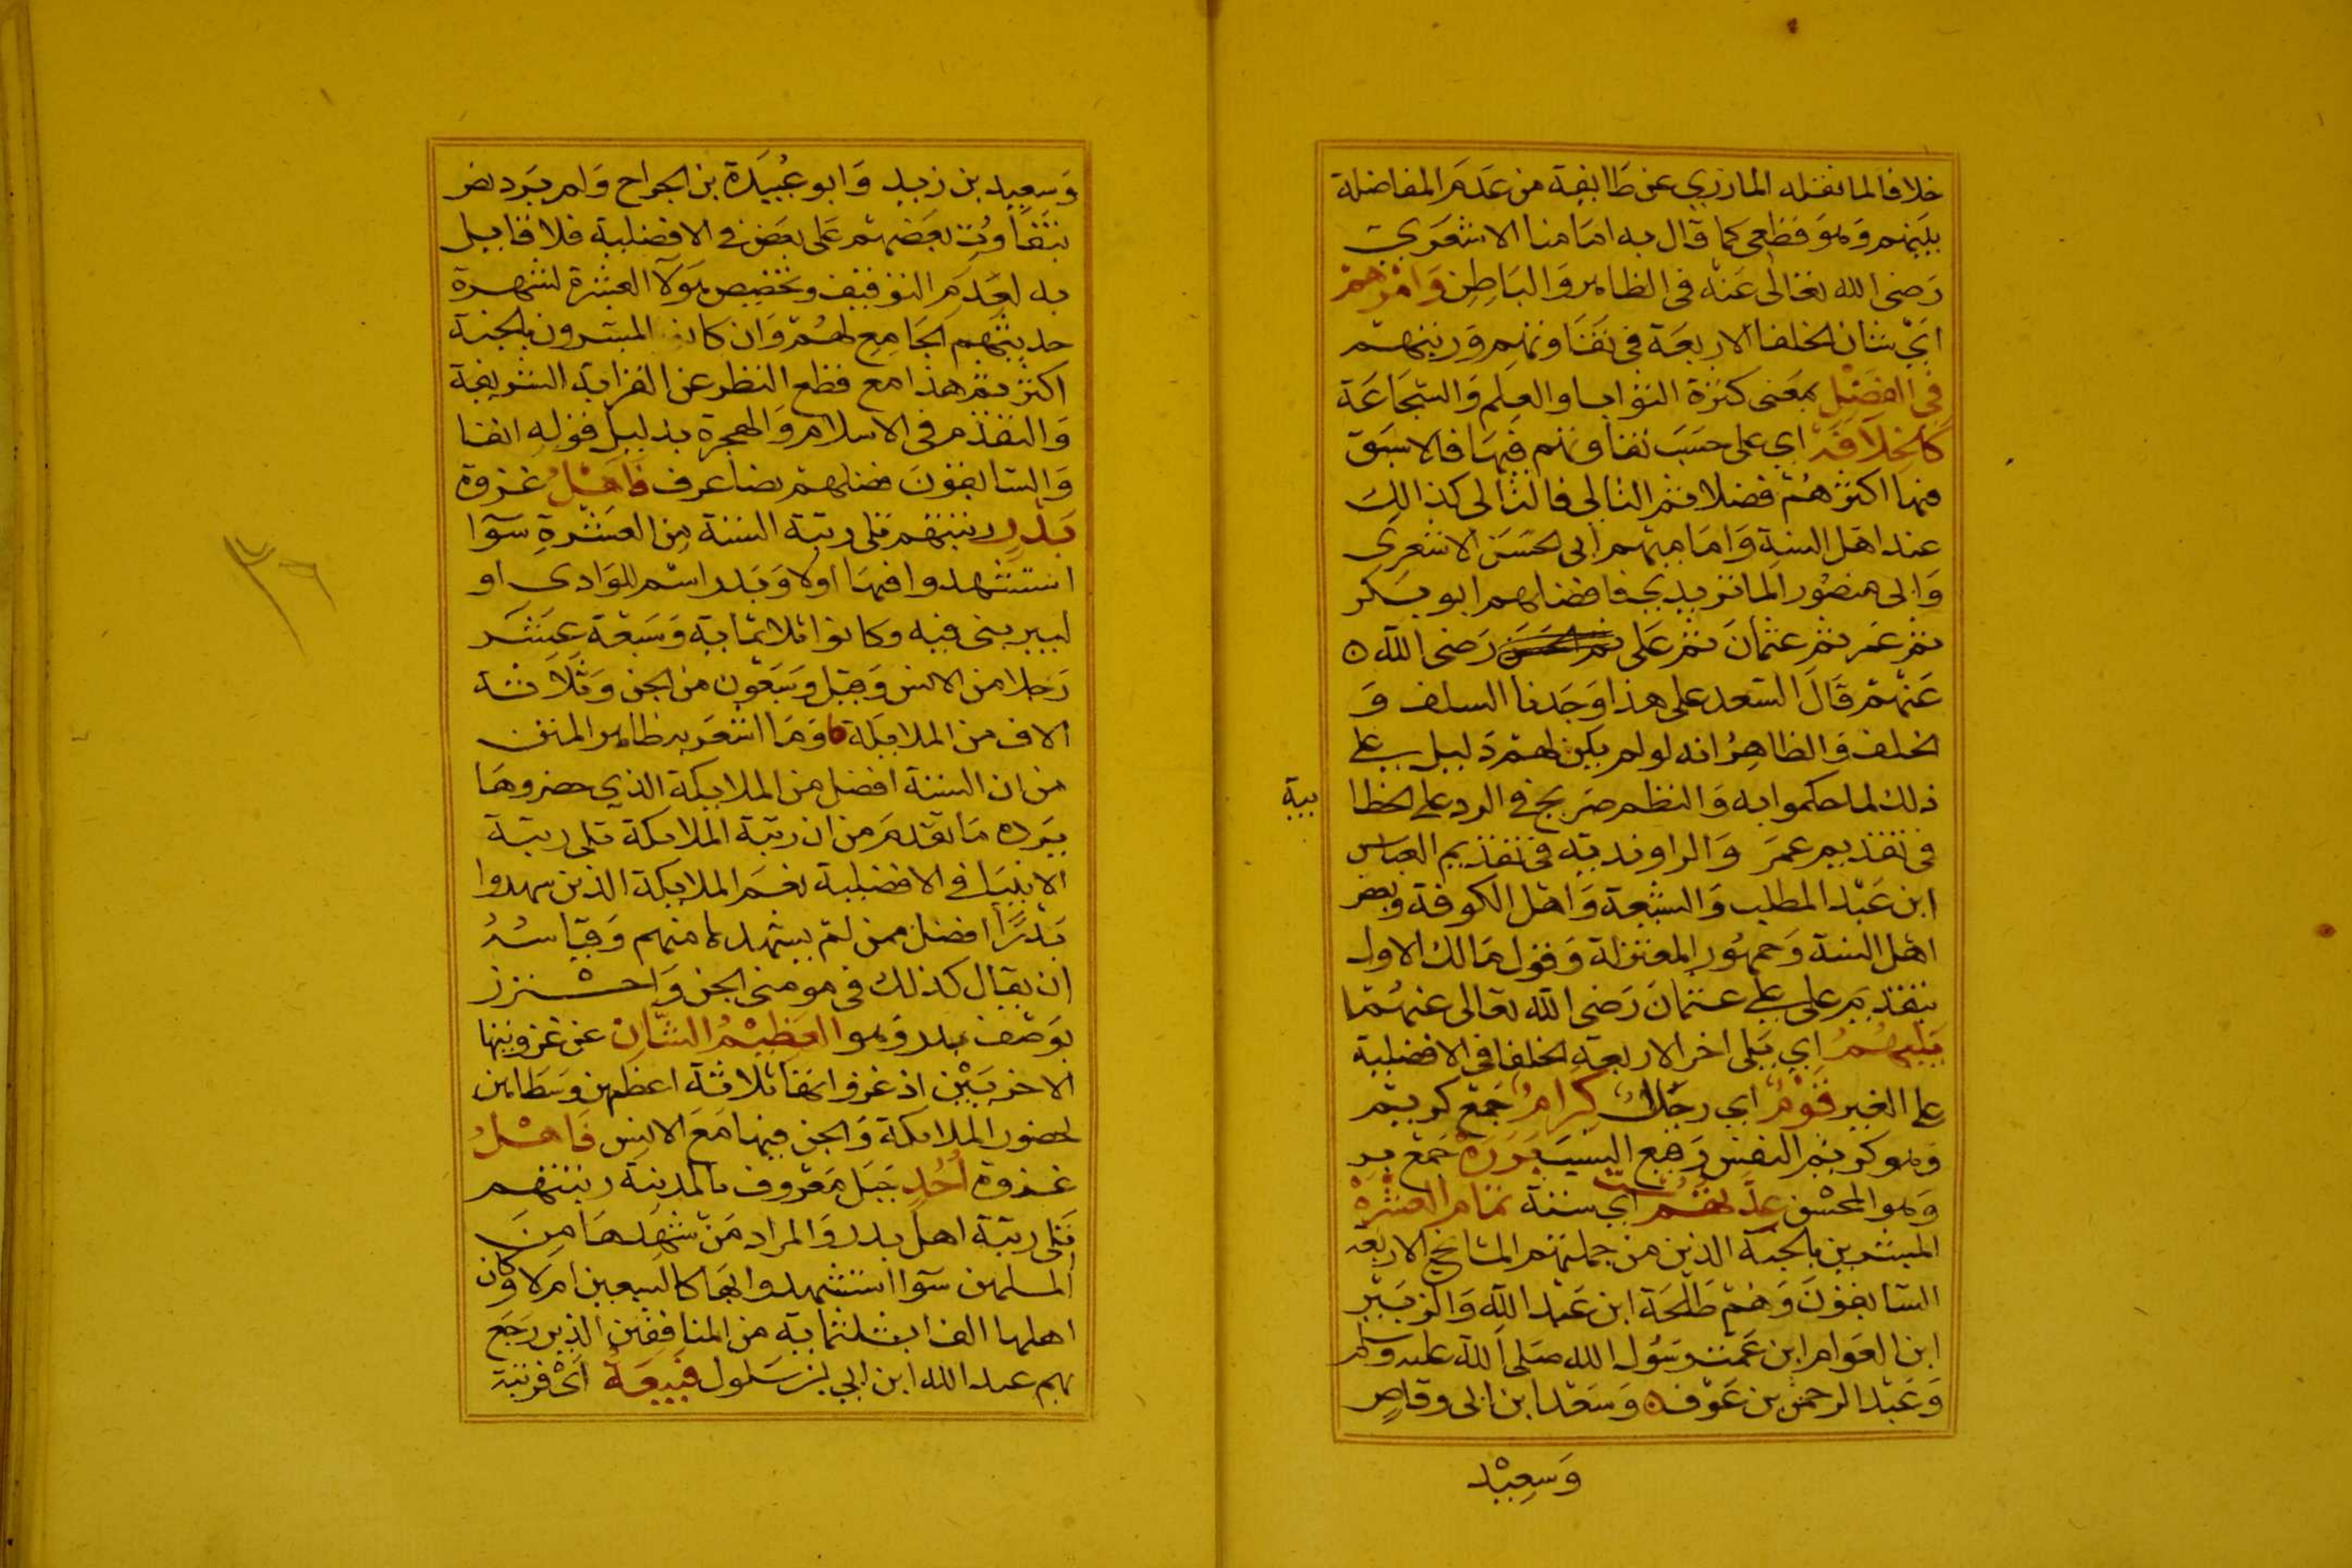 خلافا لما نقله المازري عن طايفة من عدم المفاضلة
بينهم وهو قطعي كما قال به امامنا الاشعري
رضى الله تعالى عنه فى الظاهر والباطن وامرهم
اي شان الخلفا الاربعة فى تفاوتهم ورتبهم
فى الفضل بمعنى كثرة الثواب والعلم والشجاعة
كالخلافة اي على حسب تفاوتهم فيها فالاسبق
فيها اكثرهم فضلا ثم التالى فالتالى كذالك
عند اهل السنة وامامهم ابى الحسن الاشعرى
وابى منصور الماتريدي فافضلهم ابو بكر
ثم عمر ثم عثمان ثم على ثم الحسن رضى الله
عنهم قال السعد على هذا وجدنا السلف و
الخلف والظاهر انه لو لم يكن لهم دليل على
ذلك لما حكموا به والنظم صريح في الرد على الخطا
بية
فى تقديم عمر والراوندية فى تقديم العباس
ابن عبد المطلب والشيعة واهل الكوفة وبعض
اهل السنة وجمهور المعتزلة وقول مالك الاول
بتقديم على على عثمان رضى الله تعالى عنهما
يليهم اي يلى اخر الاربعة الخلفا فى الافضلية
على الغير قوم اي رجال كرام جمع كريم
وهو كريم النفس رفيع النسب بررة جمع بر
وهو المحسن عدتهم ست اي ستة تمام العشرة
المبشرين بالجنة الذين من جملتهم المشايخ الاربعة
السابقون وهم طلحة ابن عبد الله والزبير
ابن العوام ابن عمة رسول الله صلى الله عليه وسلم
وعبد الرحمن بن عوف وسعد ابن ابى وقاص
وسعيد
وسعيد بن زيد وابو عبيدة بن الجراح ولم يرد نص
بتفاوت بعضهم على بعض في الافضلية فلا قايل
به لعدم التوقيف وتخصيص هولا العشرة لشهرة
حديثهم الجامع لهم وان كان المبشرون بالجنة
اكثر ثم هذا مع قطع النظر عن القرابة الشريفة
والتقدم فى الاسلام والهجرة بدليل قوله انفا
والسابقون فضلهم نصا عرف فاهل غزوة
بدر رتبتهم تلى رتبة الستة من العشرة سوا
استشهدوا فيها اولا وبدر اسم للوادى او
لبير بنى فيه وكانوا ثلاثماية وسبعة عشر
رجلا من الانس وقيل وسبعون من الجن وثلاثة
الاف من الملايكة وما اشعر به ظاهر المتن
من ان الستة افضل من الملايكة الذي حضروها
يرده ما تقدم من ان رتبة الملايكة تلى رتبة
الانبيا في الافضلية نعم الملايكة الذين شهدوا
بدرا افضل ممن لم يشهدها منهم وقياسه
ان يقال كذلك فى مومنى الجن واحترز
بوصف بدر وهو العظيم الشان عن غزوتيها
الاخريين اذ غزواتها ثلاثة اعظمهن وسطاهن
لحضور الملايكة والجن فيها مع الانس فاهل
غزوة احد جبل معروف بالمدينة رتبتهم
تلى رتبة اهل بدر والمراد من شهدها من
المسلمين سوا استشهدوا بها كالسبعين ام لا وكان
اهلها الف ابثلثماية من المنافقين الذين رجع
بهم عبد الله ابن ابي بن سلول فبيعة اى فرتبة
٣٦